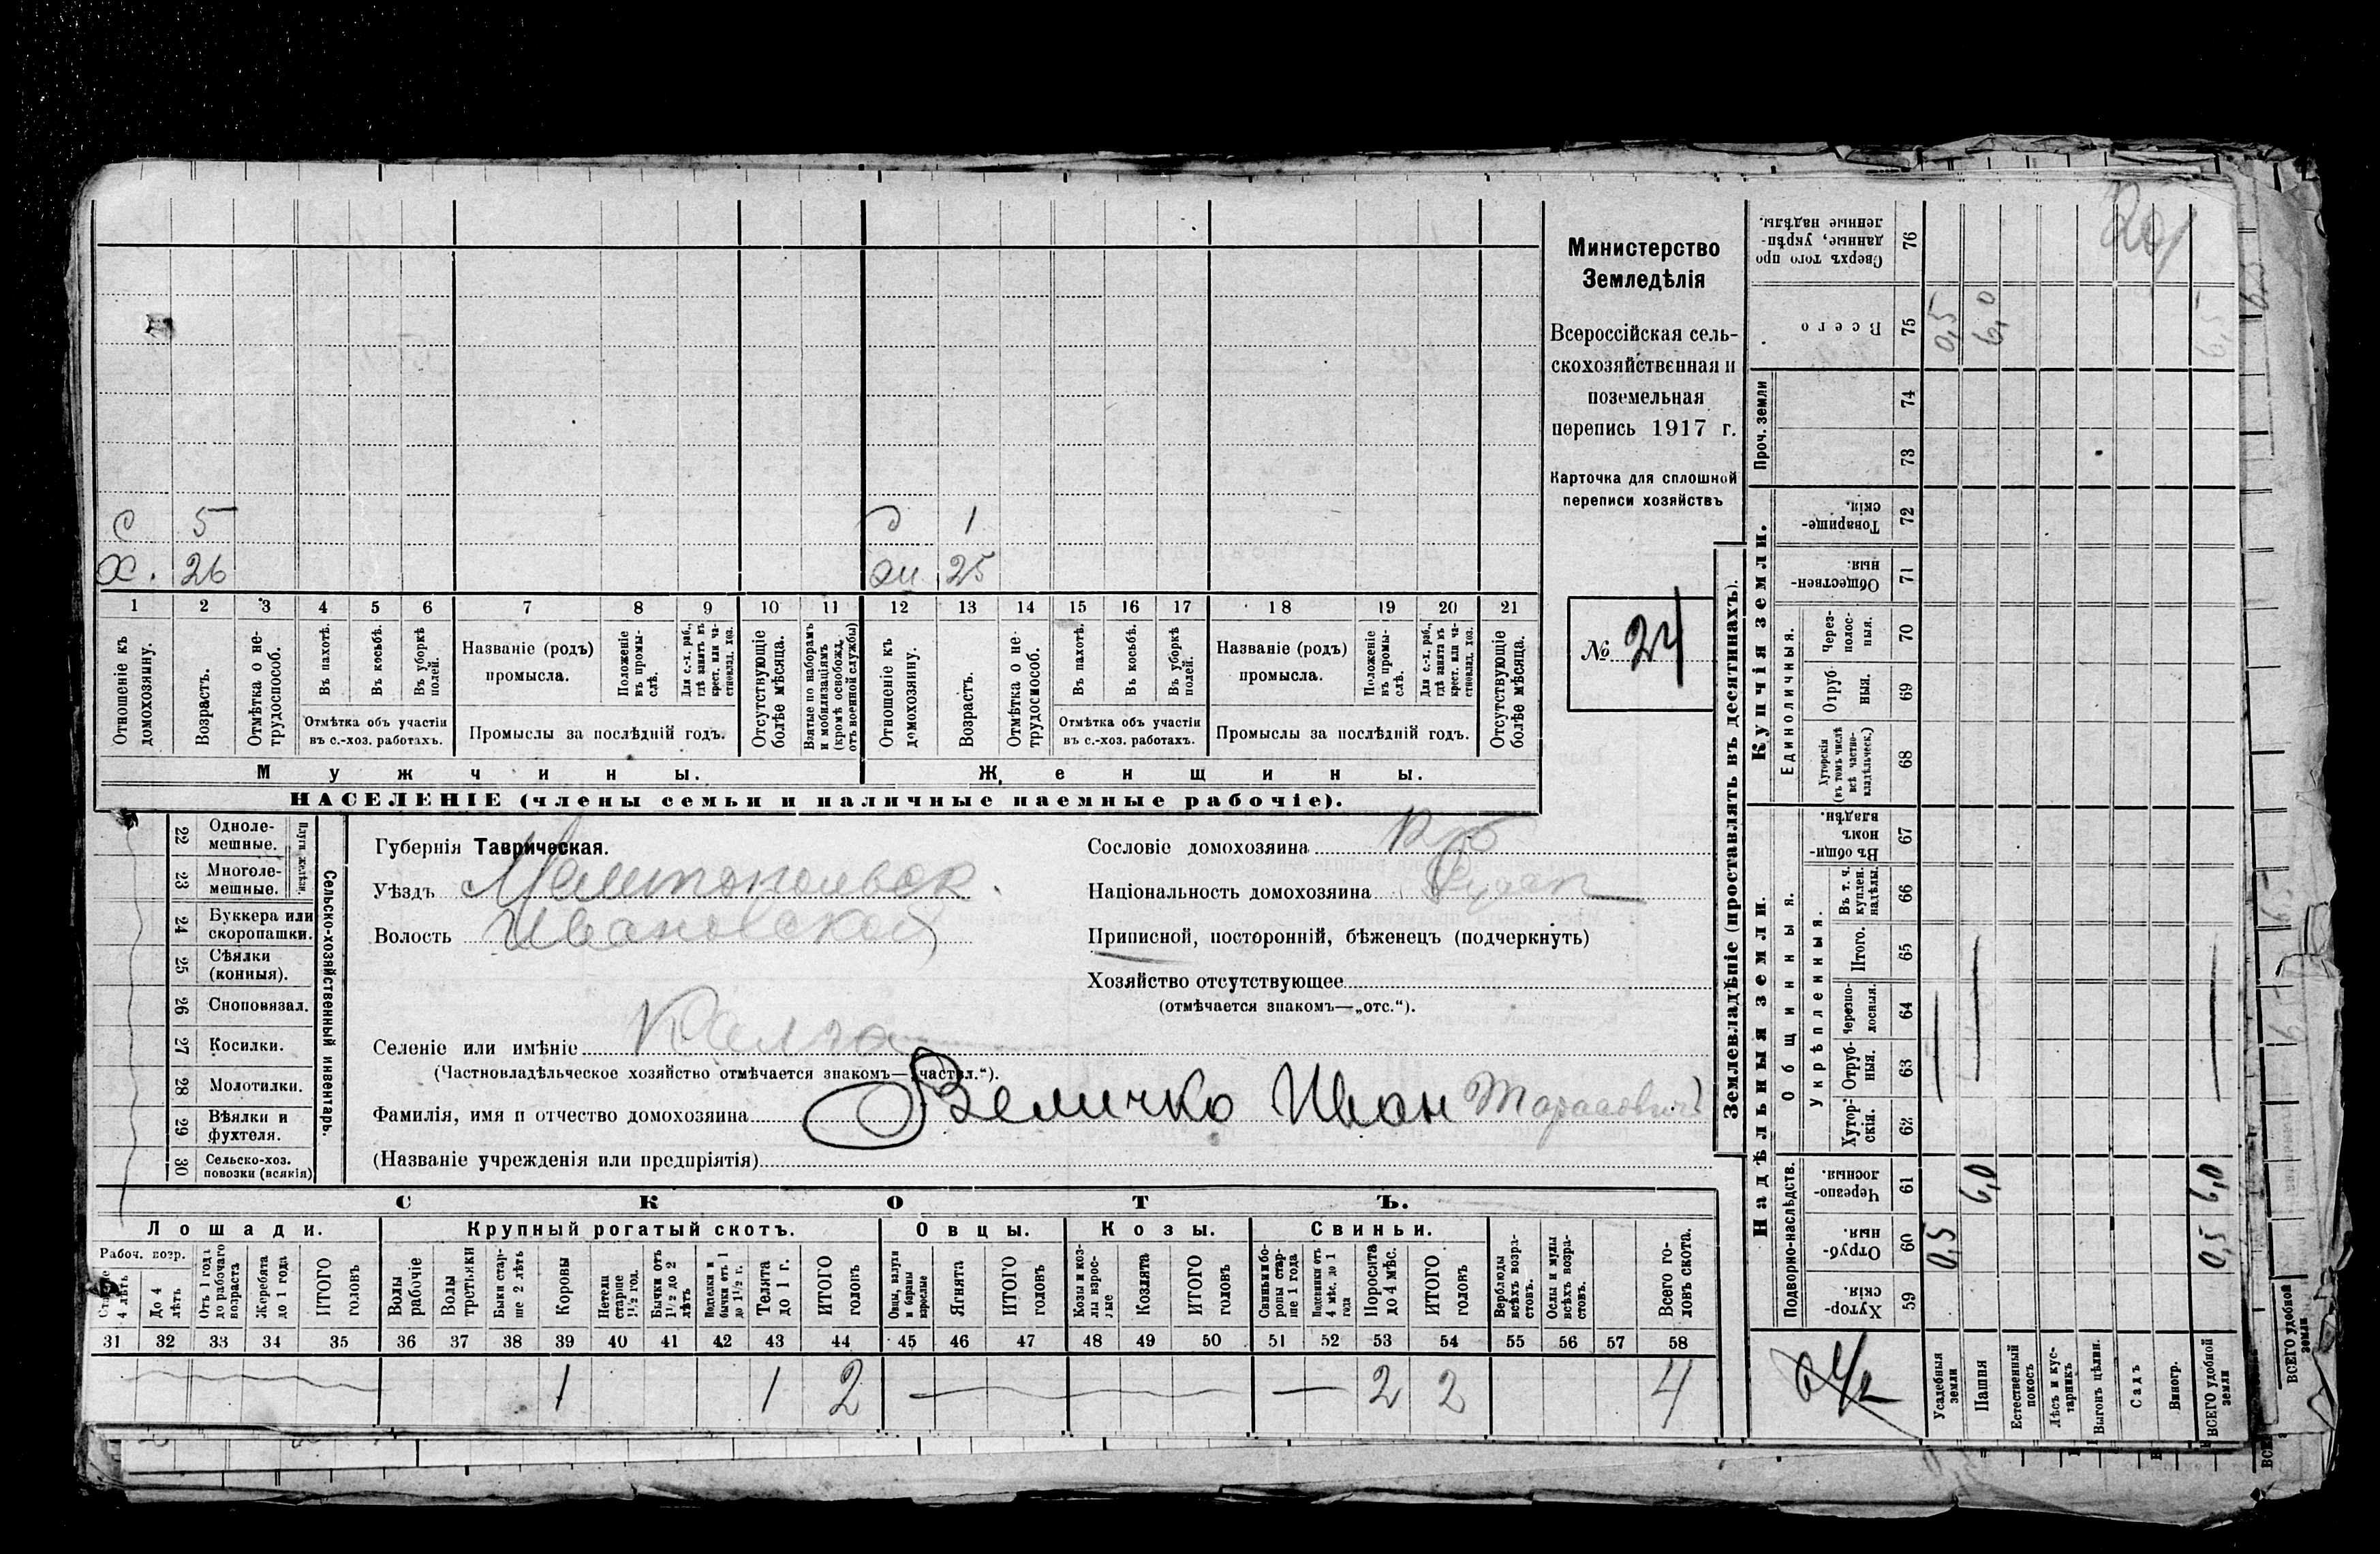 С 5 д 1
Х. 26 хи 25
1 2 3 4 5 6 7 8 9 10 11 12 13 14 15 16 17 18 19 20 21
Отношеніе къ домохозяину.
Возрастъ.
Отмѣтка о не-трудоспособ.
Въ пахотѣ.
Въ косьбѣ.
Въ уборкѣ полей.
Отмѣтка объ участіи
въ с.-хоз. работахъ.
Названіе (родъ)
промысла.
Положеніе въ промы-слѣ.
Для с.-х. раб., гдѣ занятъ въ крест. или ча-стновлад. хоз.
Промыслы за послѣдній годъ.
Отсутствующіе болѣе мѣсяца.
Взятые по наборамъ и мобилизаціямъ (кромѣ освобожд. отъ военной службы)
Отношеніе къ домохозяину.
Возрастъ.
Отмѣтка о не-трудоспособ.
Въ пахотѣ.
Въ косьбѣ.
Въ уборкѣ полей.
Отмѣтка объ участіи
въ с.-хоз. работахъ.
Названіе (родъ)
промысла.
Положеніе въ промы-слѣ.
Для с.-х. раб., гдѣ занята въ крест. или ча-стновлад. хоз.
Промыслы за послѣдній годъ.
Отсутствующіе болѣе мѣсяца.
Мужчины. Женщины.
НАСЕЛЕНІЕ (члены семьи и наличные наемные рабочіе).
Министерство
Земледѣлія
Всероссійская сель-
скохозяйственная и
поземельная
перепись 1917 г.
Карточка для сплошной
переписи хозяйствъ
№ 24
Сельско-хозяйственный инвентарь.
Плуги желѣзн.
22 Одноле-
мешные.
23 Многоле-
мешные.
24 Буккера или
скоропашки.
25 Сѣялки
(конныя).
26 Сноповязал.
27 Косилки.
28 Молотилки.
29 Вѣялки и
фухтеля.
30 Сельско-хоз.
повозки (всякія)
Губернія Таврическая.
Уѣздъ Мелитопольск.
Волость Ивановской
Селеніе или имѣніе Калга
(Частновладѣльческое хозяйство отмѣчается знакомъ—„частвл.“).
Фамилія, имя и отчество домохозяина Величко Иван Тарасовичъ
(Названіе учрежденія или предпріятія)
Сословіе домохозяина
Національность домохозяина
Приписной, посторонній, бѣженецъ (подчеркнуть)
Хозяйство отсутствующее
(отмѣчается знакомъ—„отс.“).
СКОТЪ.
Лошади. Крупный рогатый скотъ. Овцы. Козы. Свиньи.
Рабоч. возр.
Старше 4 лѣтъ
До 4 лѣтъ
Отъ 1 года до рабочаго возраста
Жеребята до 1 года
ИТОГО головъ
Волы рабочіе
Волы третьяки
Быки стар-ше 2 лѣтъ
Коровы
Нетели старше 1½ год.
Бычки отъ 1½ до 2 лѣтъ
Подтелки и бычки отъ 1 до 1½ г.
Телята до 1 г.
ИТОГО головъ
Овцы, валухи и бараны взрослые
Ягнята
ИТОГО головъ
Козы и коз-лы взрос-лые
Козлята
ИТОГО головъ
Свиньи и бо-ровы стар-ше 1 года
Подсвинки отъ 4 мѣс. до 1 года
Поросята до 4 мѣс.
ИТОГО головъ
Верблюды всѣхъ возра-стовъ.
Ослы и мулы всѣхъ возра-стовъ.
Всего го-ловъ скота.
31 32 33 34 35 36 37 38 39 40 41 42 43 44 45 46 47 48 49 50 51 52 53 54 55 56 57 58
1 1 2 2 2 4
Землевладѣніе (проставлять въ десятинахъ).
Купчія земли.
Надѣльныя земли.
Проч. земли
Единоличныя.
Общинныя.
Укрѣпленныя.
Подворно-наслѣдств.
Сверхъ того про
данные, укрѣп-
ленные надѣлы. 76
Всего 75 0,5 6,0 6,5
74
73
Товарище-
скія. 72
Обществен-
ныя. 71
Через-
полос-
ныя. 70
Отруб
ныя. 69
Хуторскія
(въ томъ числѣ
всѣ частно-
владѣльческ.) 68
Въ общин
номъ
владѣн. 67
Въ т. ч.
куплен.
надѣлы. 66
Итого. 65
Черезпо-
лосныя. 64
Отруб-
ныя. 63
Хутор-
скія. 62
Черезпо-
лосныя. 61 6,0 6,0
Отруб-
ныя. 60 0,5 0,5
Хутор-
скія. 59
Усадебныя
земли
Пашня
Естественный
покосъ
Лѣсъ и кус-
тарникъ
Выгонъ цѣлин.
Садъ
Виногр.
ВСЕГО удобной
земли
ВСЕГО удобной
земли